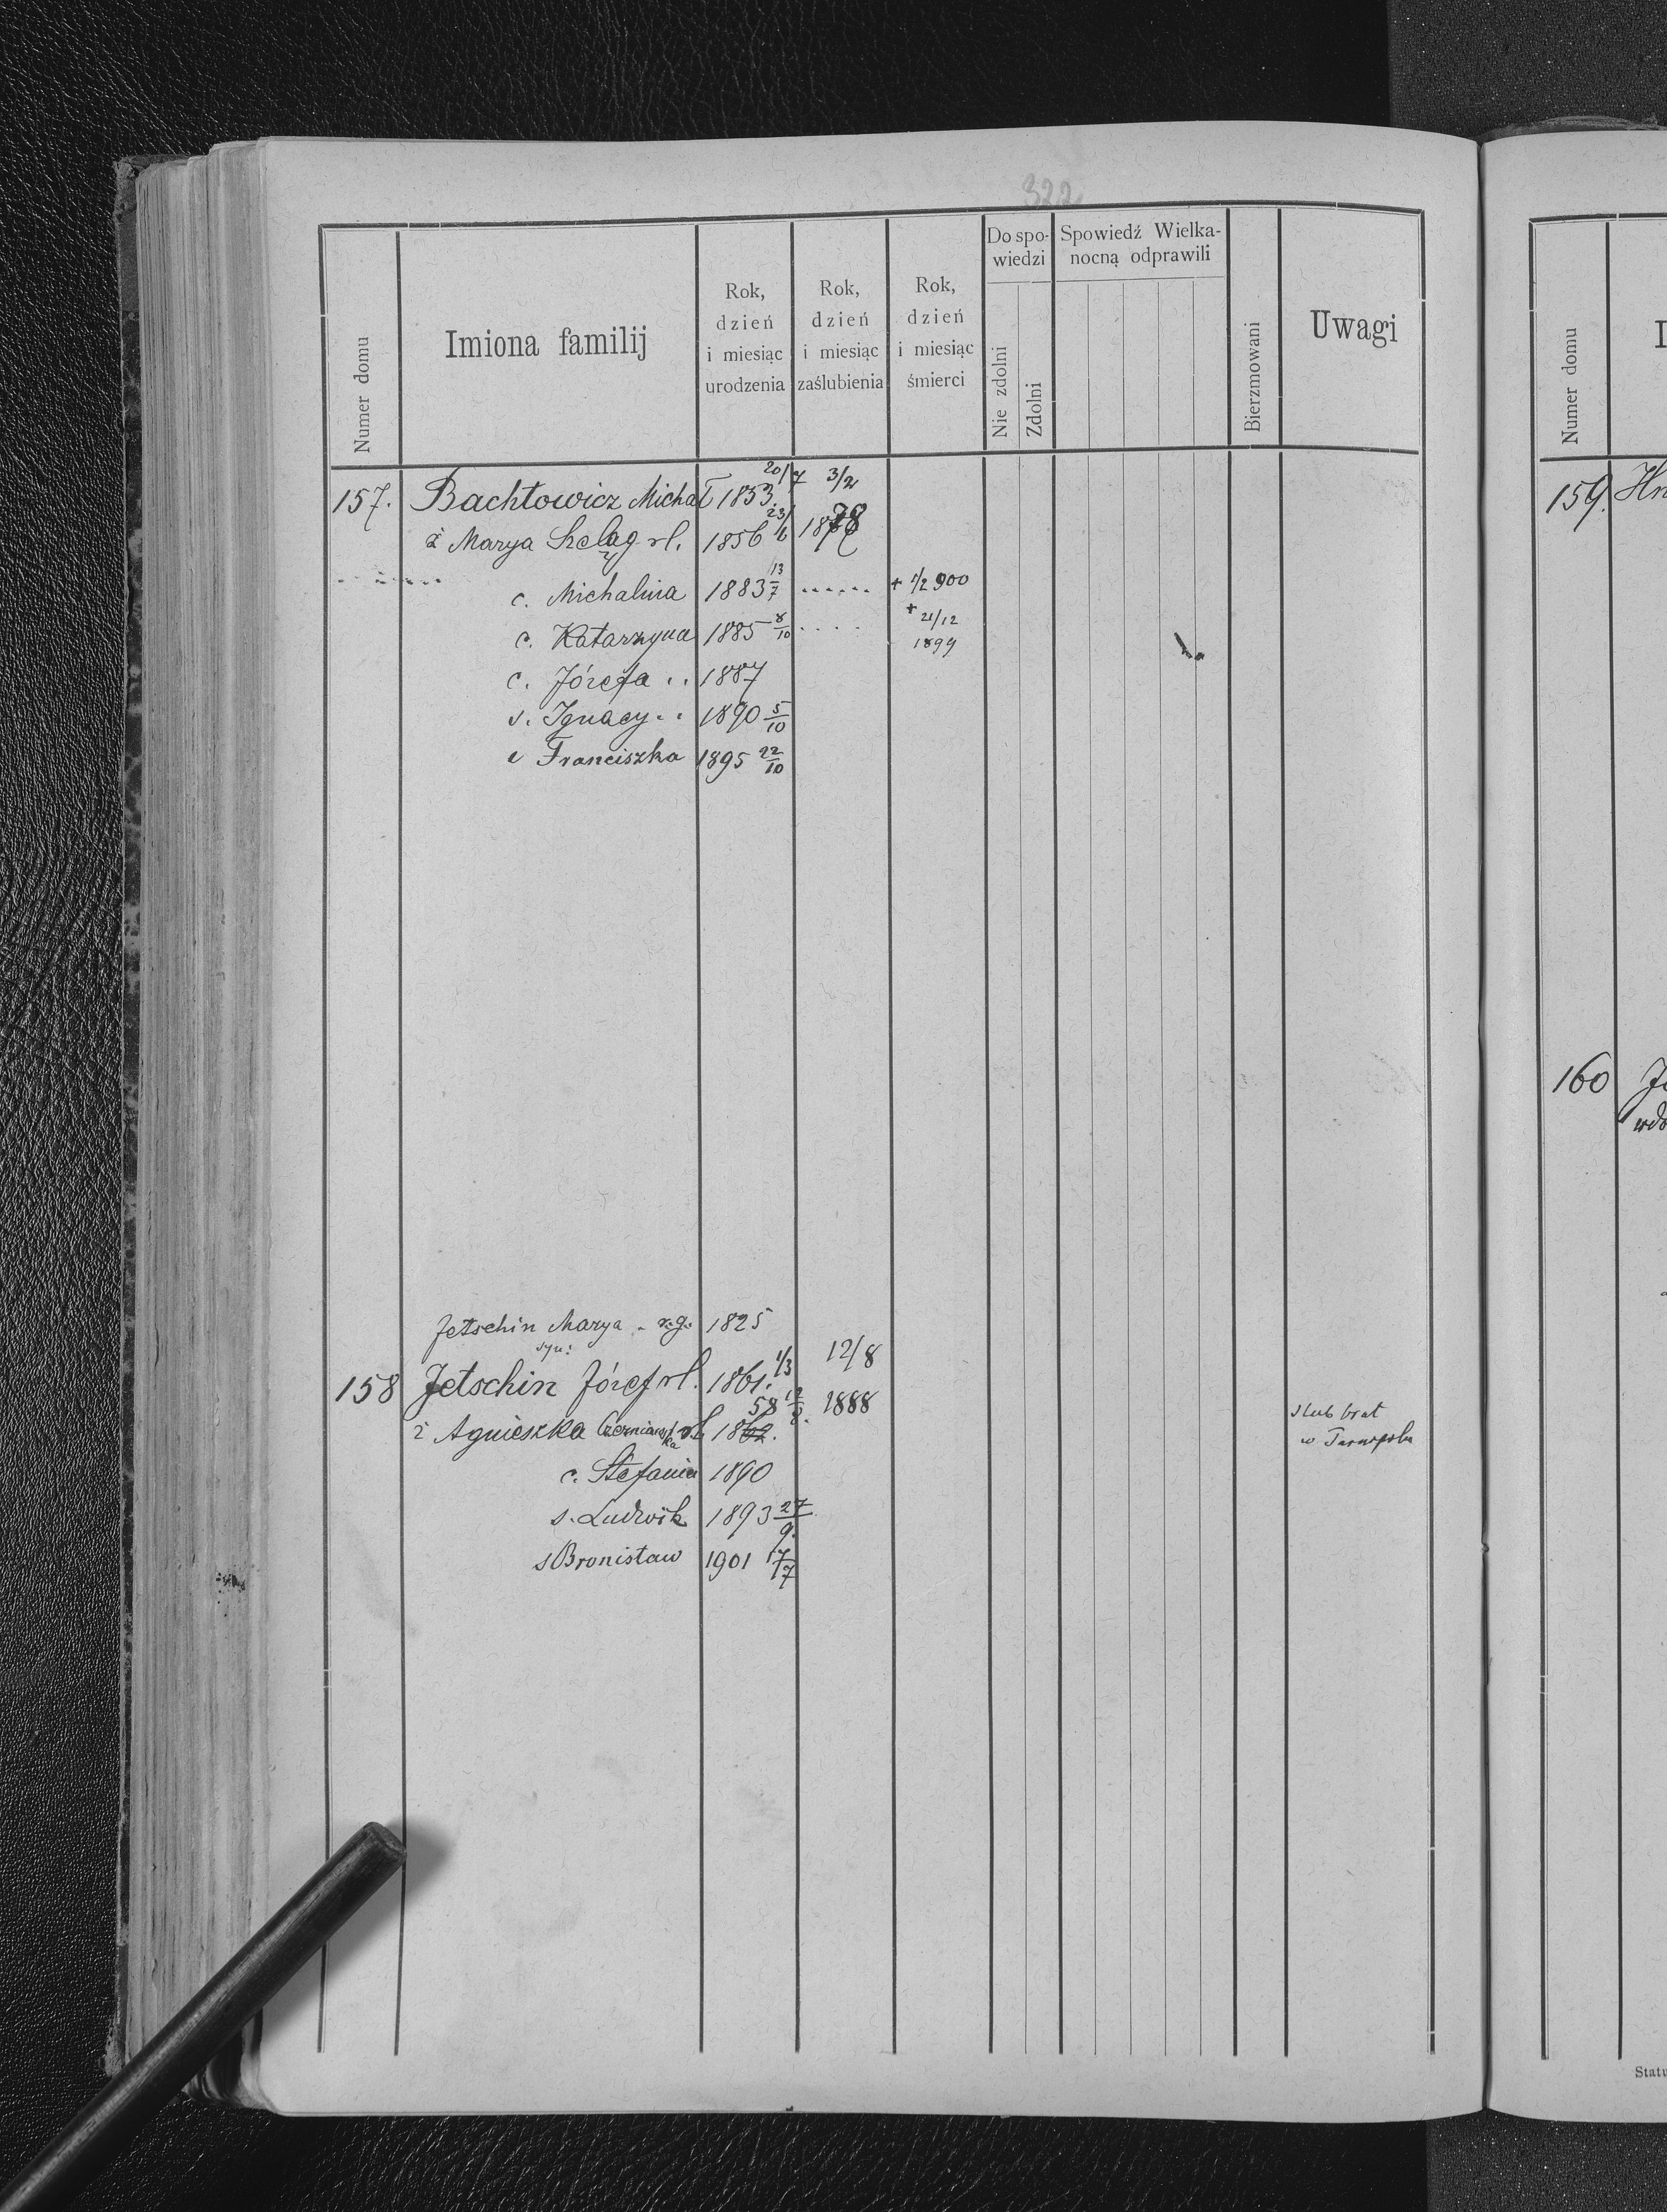 322
Numer domu
Imiona familij
Rok, dzień i miesiąc urodzenia
Rok, dzień i miesiąc zaślubienia
Rok, dzień i miesiąc śmierci
Do spowiedzi
Nie zdolni
Zdolni
Spowiedź Wielkanocną odprawili
Bierzmowani
Uwagi
157. Bachtowicz Michał 1853. 20/7 3/2
ż Marya Szeląg rl. 1856 23/6 1878
c. Michalina 1883 13/7 ...... + 1/2 900
c. Katarzyna 1885 8/10 .... + 21/12 1899
c. Józefa .. 1887
s. Ignacy .. 1890 5/10
c Franciszka 1895 22/10
Jetschin Marya - r.g. 1825
syn:
158 Jetschin Józef rl. 1861. 1/3 12/8
ż Agnieszka Czerniawska rl 1862. 58 1888
ślub brał
w Tarnopolu
c. Stefania 1890
s. Ludwik 1893 27/9.
s Bronisław 1901 17/7
Numer domu
159. Hn
160 Je
wdo
Statu